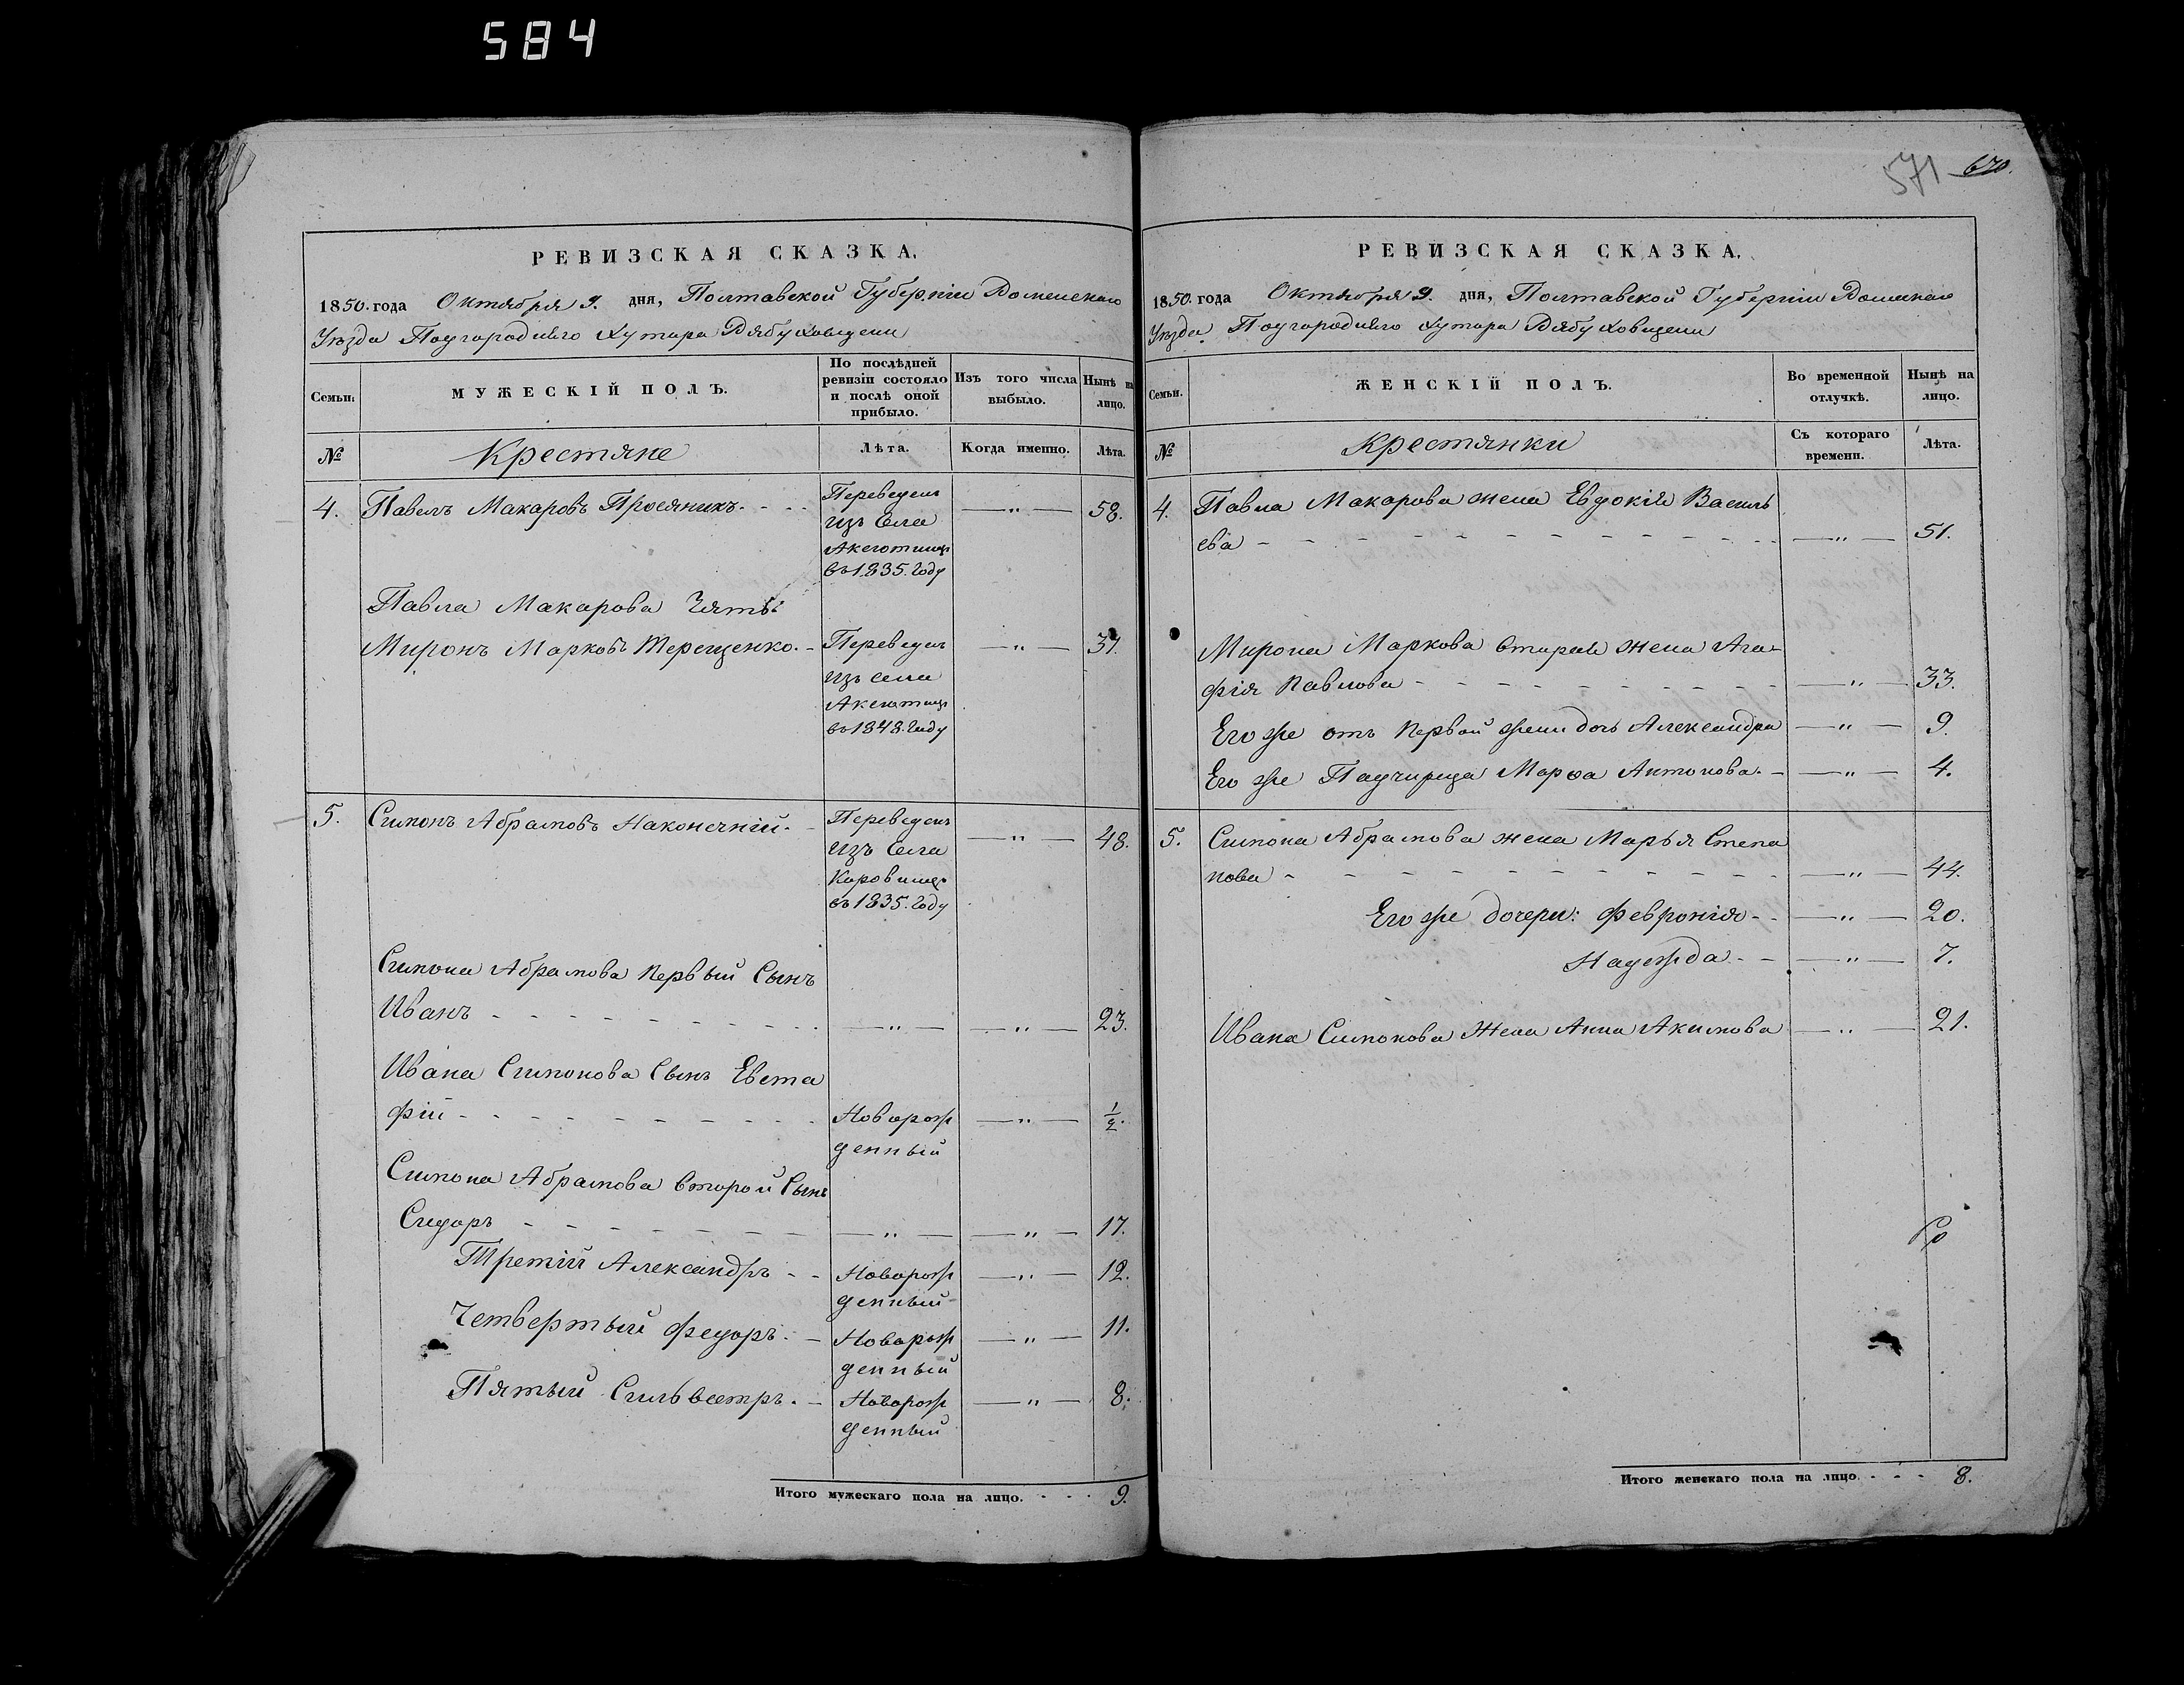 584
РЕВИЗСКАЯ СКАЗКА.
1850. года Октября 9. дня, Полтавской Губерніи Роменскаго
Уѣзда Подгороднего Хутора Рябуховщени
Семьи.
МУЖЕСКІЙ ПОЛЪ.
По послѣдней ревизіи состояло и послѣ оной прибыло.
Изъ того числа выбыло.
Нынѣ на лицо.
№
Крестяне
Лѣта.
Когда именно.
Лѣта.
4. Павелъ Макаровъ Просяникъ. - - Переведенъ — " — 58.
изъ Села
въ 1835. году
Павла Макарова Зять
Миронъ Марковъ Терещенко. - Переведенъ — " — 31.
изъ села
въ 1848. году
5. Симонъ Абрамовъ Наконечній. - Переведенъ — " — 48.
изъ Села
въ 1835. году
Симона Абрамова первый Сынъ
Иванъ - - - - — " — — " — 23.
Ивана Симонова Сынъ Евста
фій - - - - Новорож — " — 1/2.
денный
Симона Абрамова второй Сынъ
Сидоръ - - - - — " — — " — 17.
Третій Александръ - - Новорож — " — 12.
денный
Четвертый Федоръ. - Новорож — " — 11.
денный
Пятый Сильвестръ. - Новорож — " — 8.
денный
Итого мужескаго пола на лицо. - - - 9.
571 670.
РЕВИЗСКАЯ СКАЗКА.
1850. года Октября 9. дня, Полтавской Губерніи Роменскаго
Уѣзда Подгороднего Хутора Рябуховщени
Семьи.
ЖЕНСКІЙ ПОЛЪ.
Во временной отлучкѣ.
Нынѣ на лицо.
№
Крестянки
Съ котораго времени.
Лѣта.
4. Павла Макарова жена Евдокія Василь
ева - - - - — " — 51.
Мирона Маркова вторая жена Ага-
фія Павлова - - - - — " — 33.
Его же отъ первой жени дочь Александра — " — 9.
Его же Падчирица Марѳа Антонова. - — " — 4.
5. Симона Абрамова жена Марья Степа
нова - - - - — " — 44.
Его же дочери: Февронія - - — " — 20.
Надежда - - — " — 7.
Ивана Симонова жена Анна Акимова — " — 21.
Итого женскаго пола на лицо. - - - 8.